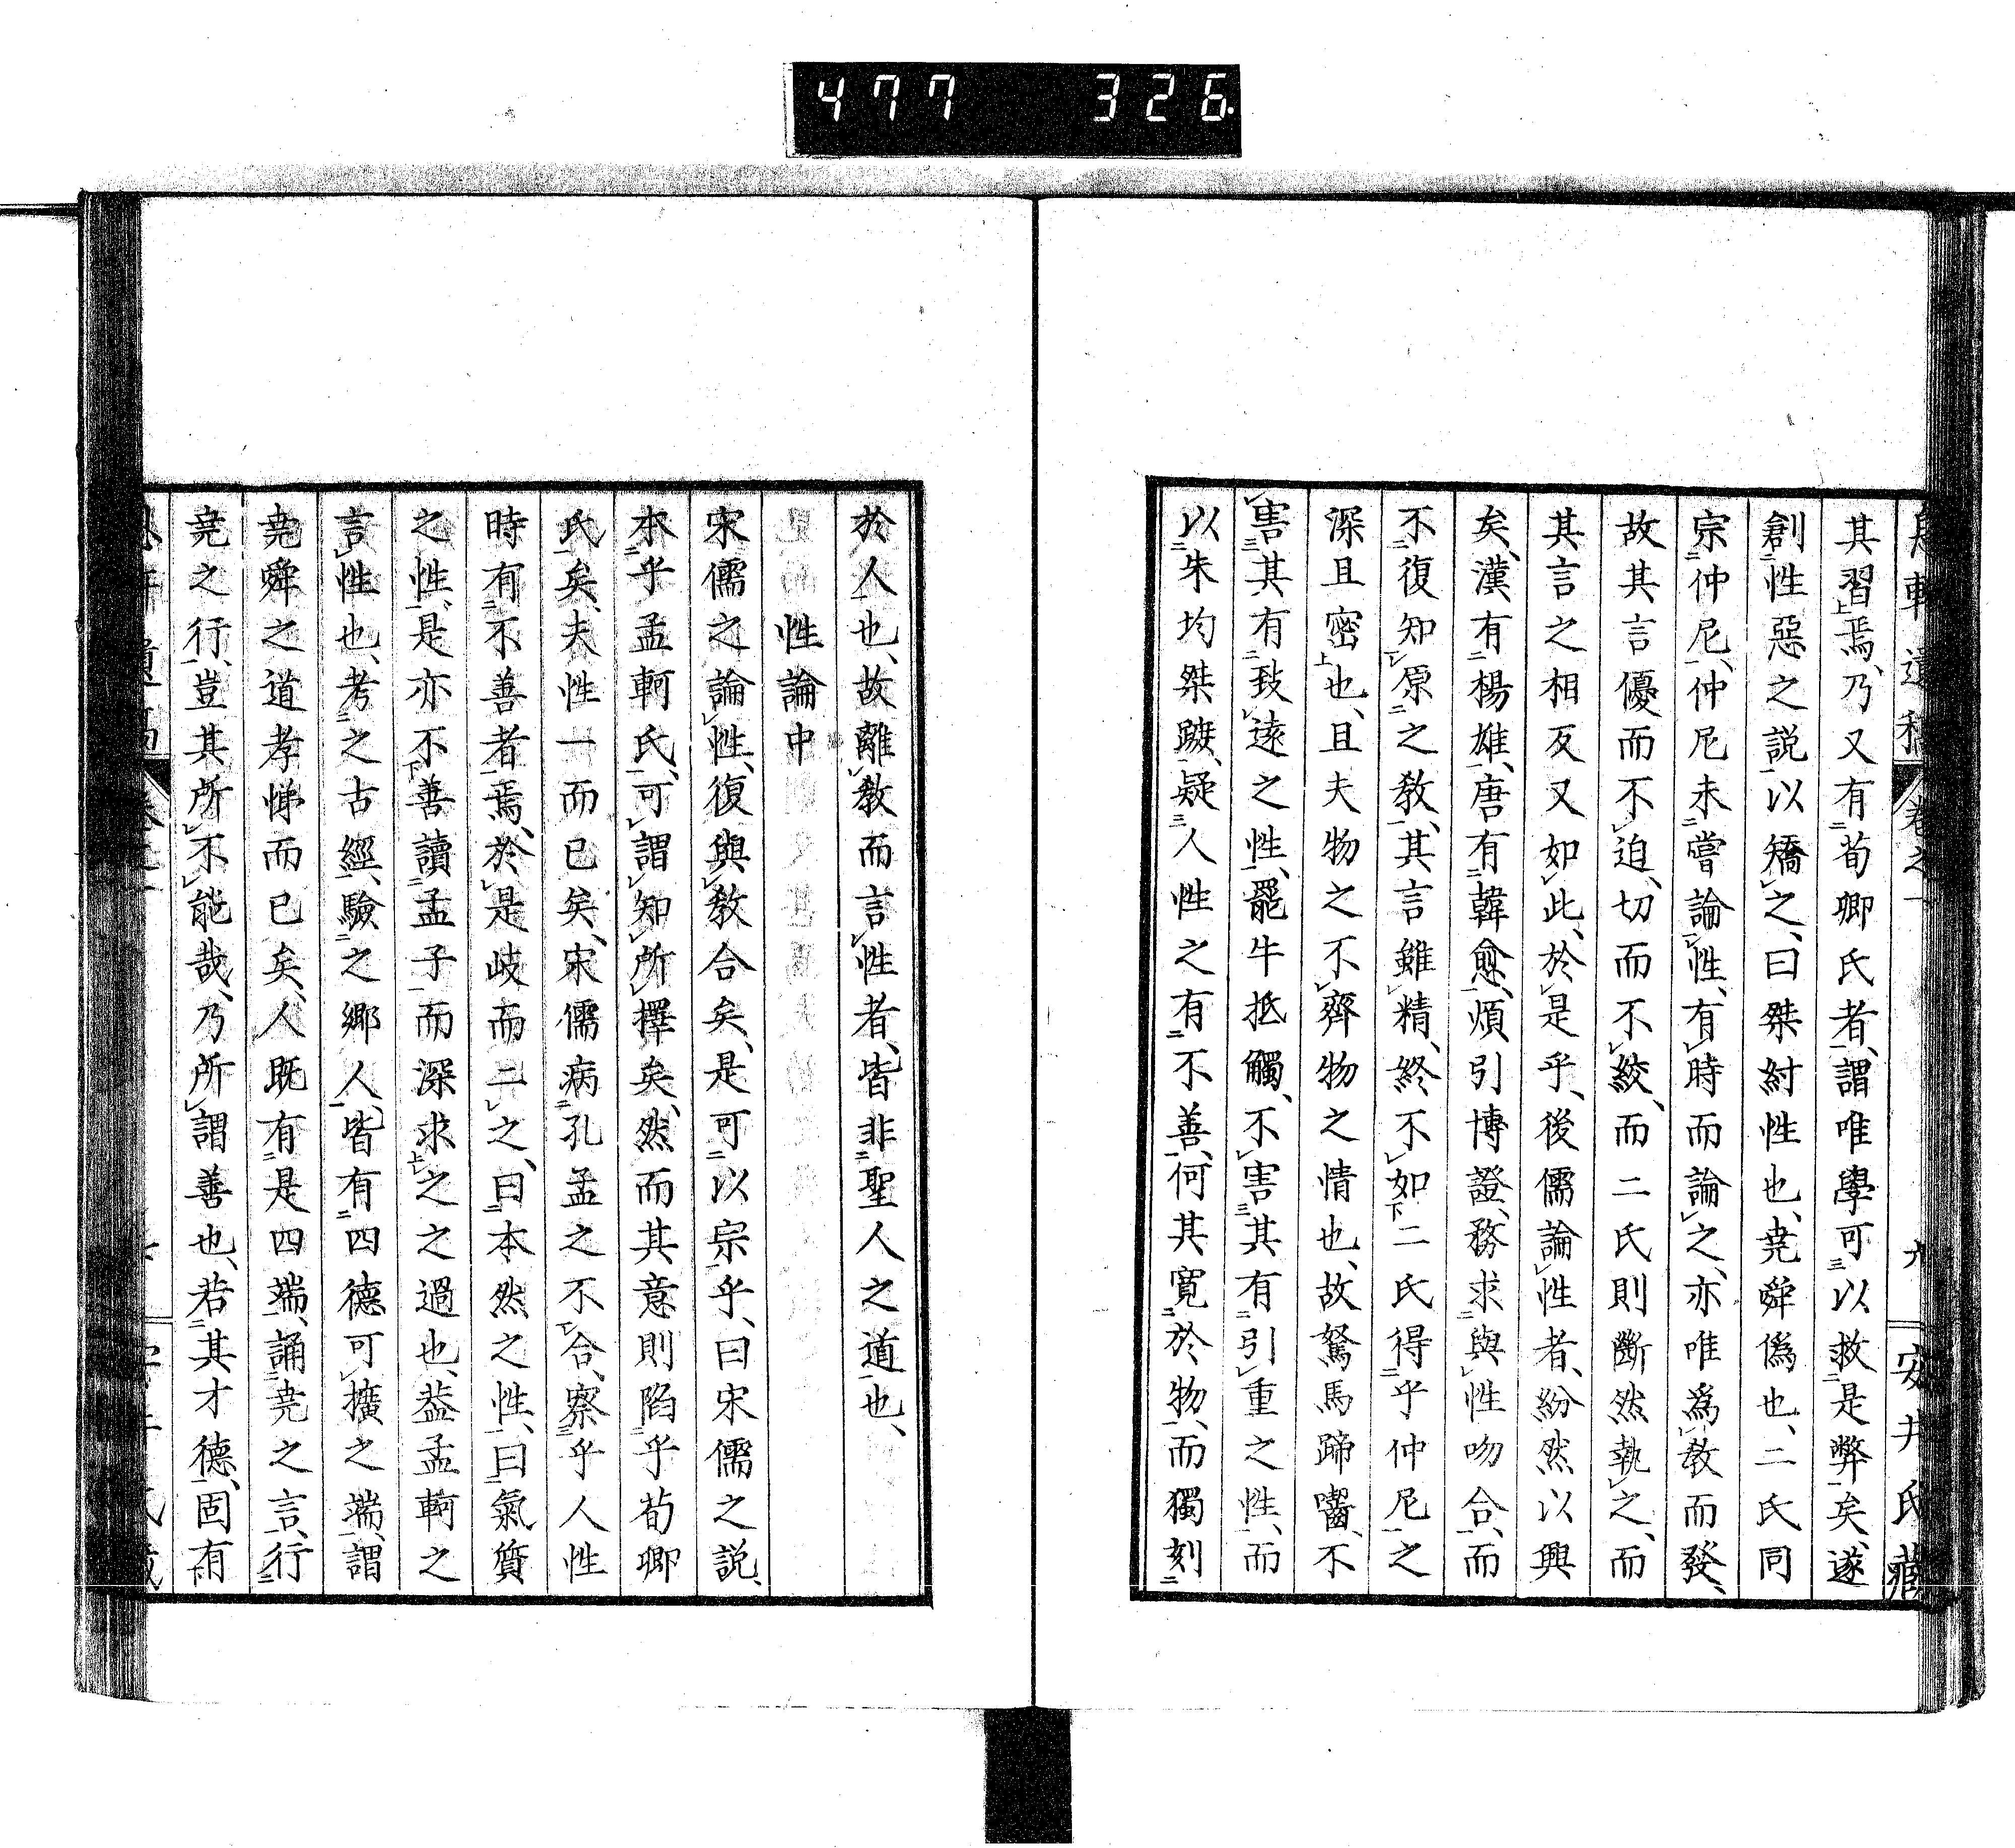 477 326
軒遺稿 卷之一 九 安井氏藏
其習焉、乃又有荀卿氏者、謂唯學可以救是弊矣、遂
創性惡之說、以矯之、曰桀紂性也、堯舜僞也、二氏同
宗仲尼、仲尼未嘗論性、有時而論之、亦唯爲教而發、
故其言優而不迫、切而不絞、而二氏則斷然執之、而
其言之相反又如此、於是乎、後儒論性者、紛然以興
矣、漢有楊雄、唐有韓愈、煩引博證、務求與性吻合、而
不復知原之教、其言雖精、終不如二氏得乎仲尼之
深且密也、且夫物之不齊物之情也、故駑馬蹄嚙、不
害其有致遠之性、罷牛抵觸、不害其有引重之性、而
以朱均桀蹠、疑人性之有不善、何其寬於物、而獨刻
於人也、故離教而言性者、皆非聖人之道也、
性論中
宋儒之論性、復與教合矣、是可以宗乎、曰宋儒之說、
本乎孟軻氏、可謂知所擇矣、然而其意則陷乎荀卿
氏矣、夫性一而已矣、宋儒病孔孟之不合、察乎人性
時有不善者焉、於是歧而二之、曰本然之性、曰氣質
之性、是亦不善讀孟子、而深求之之過也、葢孟軻之
言性也、考之古經、驗之鄉人、皆有四德可擴之端、謂
堯舜之道孝悌而已矣、人既有是四端、誦堯之言、行
堯之行、豈其所不能哉、乃所謂善也、若其才德、固有